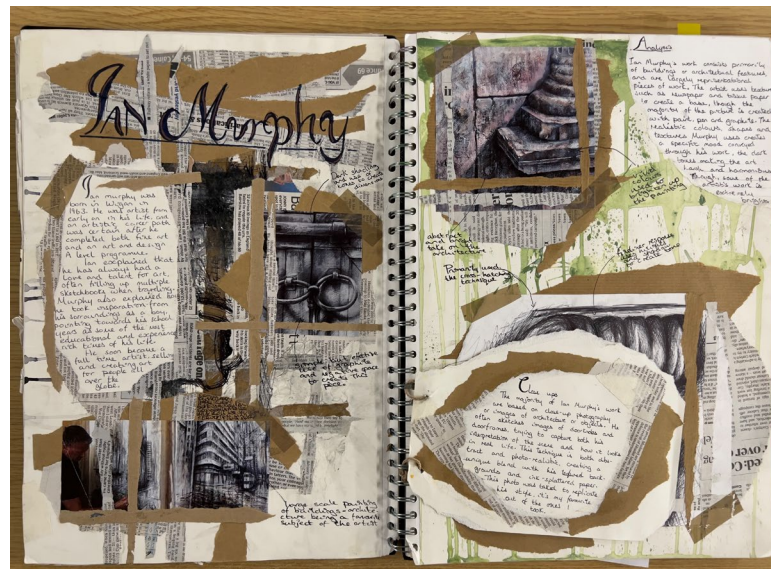 Ian Murphy
Ian murphy was
born in Wigan in
1963. He was artist from
early on in his life and
an artistic career path
was certain after he
completed both fine art
and an art and design
A level programme.
Ian explained that
he has always had a
love and talent for art,
often filling up multiple
sketchbooks when traveling.
Murphy also explained how
he took inspiration from
his surroundings as a boy,
pointing towards his school
years as some of the most
educational and experience
rich times of his life.
He soon became a
full time artist, selling
and creating art
for people all
over the
globe.
Dark shading
and use of
tones
dimension
Simple but effective
use of graphite
and negative space
to create this
piece
large scale painting
of buildings - archite-
cture being a favourite
subject of the artist
Analysis
Ian Murphy's work consists primarily
of buildings or architectural features,
and are largely representational
pieces of work. The artist uses texture
such as newspaper and tissue paper
to create a base, though the
majority of the picture is created
with paint, pen and graphite. The
realistic colours, shapes and
textures Murphy uses creates
a specific mood conveyed
through his work, the dark
tones making the art
and harmonious
though some of the
artist's work is
colour
used in
the painting
abstract
and
take on the
architecture
Primarily used
the cross-hatching
technique
response
Close ups
The majority of Ian Murphy's work
are based on close-up photography
or images of architecture or objects. He
often sketches images of doorknobs and
doorframes, trying to capture both his
interpretation of the scene and how it looks
in real life. This technique is both abs-
tract and photo-realistic, creating a
unique blend with his layered back-
grounds and ink-splattered paper.
This photo was taken to replicate
his style, it's my favourite
out of the ones I
took.